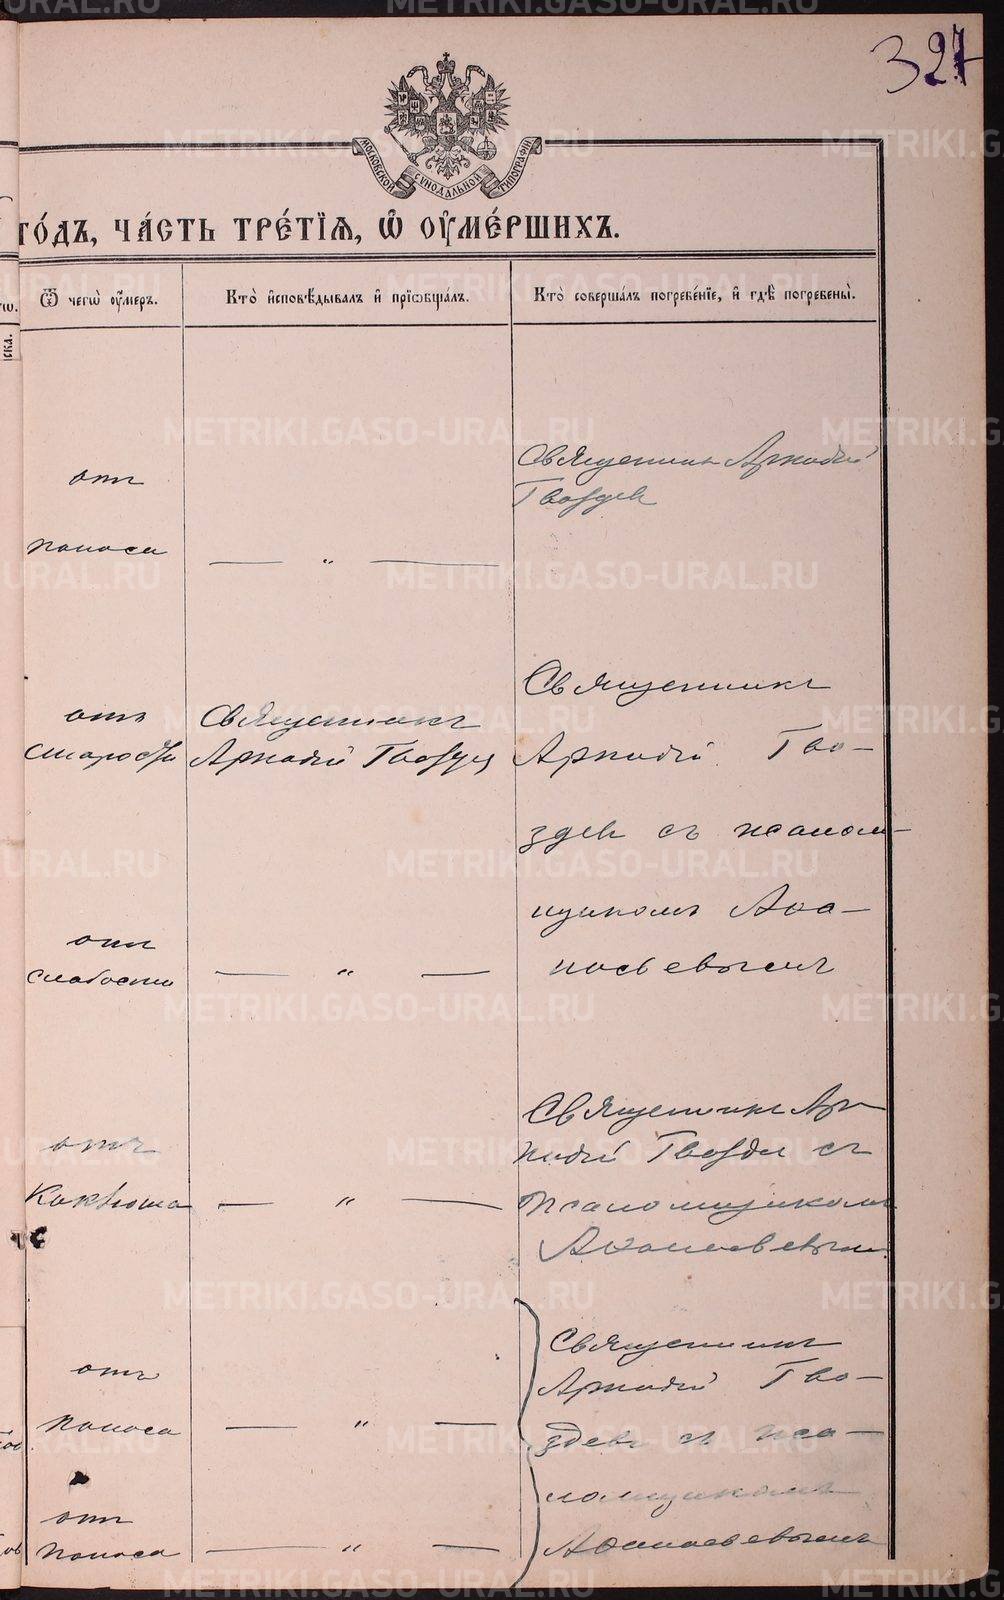 327
МОСКОВСКОЙ СѴНОДАЛЬНОЙ ТИПОГРАФІИ
го́дъ, ча́сть тре́тїѧ, ѡ҆ ᲂу҆ме́ршихъ.
Ѿ чегѡ̀ ᲂу҆́меръ.
Кто̀ и҆сповѣ́дывалъ и҆ прїѡбща́лъ.
Кто̀ соверша́лъ погребе́нїе, и҆ гдѣ̀ погребены̀.
отъ
поноса
— „ —
Священникъ Аркадій
Гвоздев
отъ
старости
Священникъ
Аркадій Гвоздев
Священникъ
Аркадій Гво-
здев съ псалом-
щикомъ Аѳа-
насьевымъ
отъ
слабости
— „ —
отъ
Коклюша
— „ —
Священникъ Ар-
кадій Гвоздев съ
псаломщикомъ
Аѳанасьевымъ
отъ
поноса
— „ —
Священникъ
Аркадій Гво-
здевъ съ пса-
ломщикомъ
Аѳанасьевымъ
отъ
поноса
— „ —
METRIKI.GASO-URAL.RU